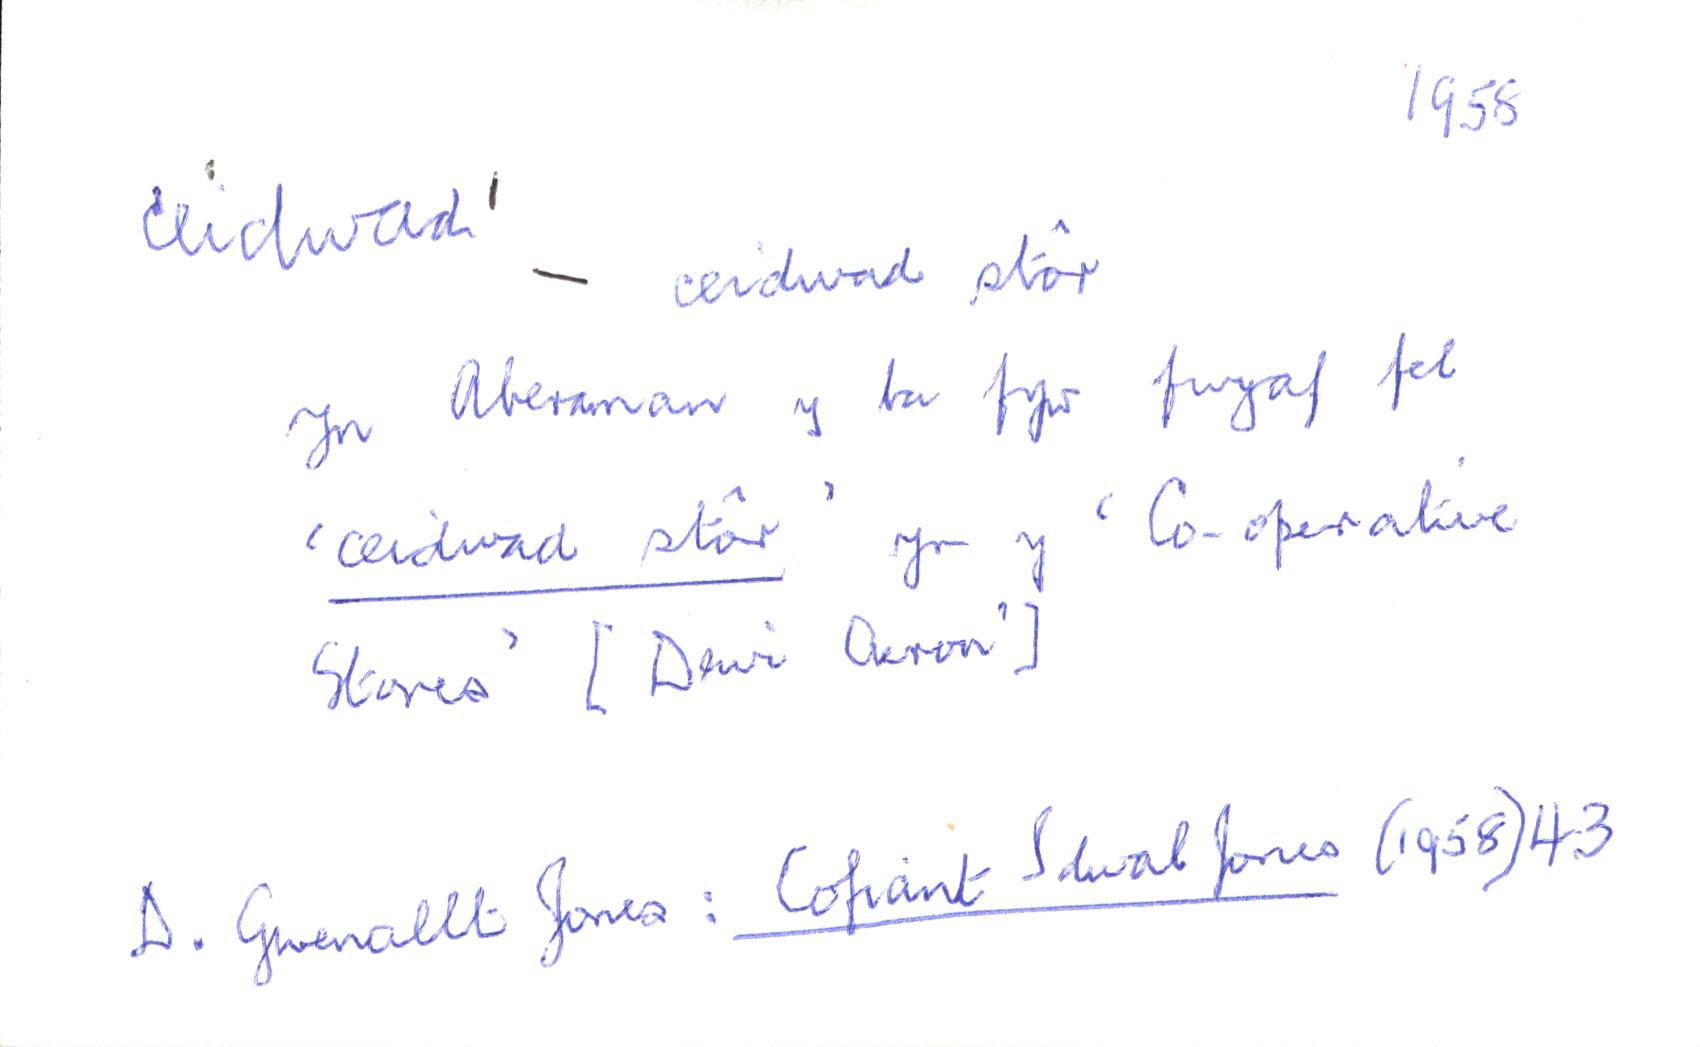 1958
ceidwad¹
– ceidwad stôr
Yn Aberaman y bu fyw fwyaf fel
‘ceidwad stôr’ yn y ‘Co-operative
Stores’ [Dewi Aeron’]
D. Gwenallt Jones: Cofiant Idwal Jones (1958) 43